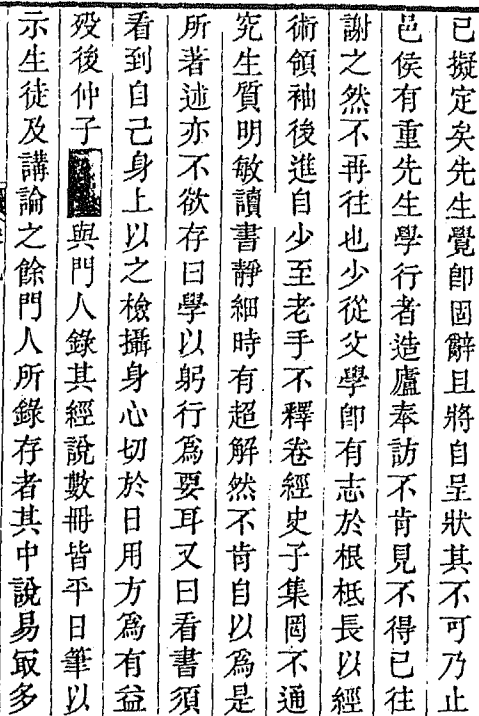 已擬定矣先生覺卽固辭且將自呈狀其不可乃止
邑侯有重先生學行者造廬奉訪不肯見不得已往
謝之然不再往也少從父學卽有志於根柢長以經
術領袖後進自少至老手不釋卷經史子集罔不通
究生質明敏讀書靜細時有超解然不肯自以爲是
所著述亦不欲存曰學以躬行爲要耳又曰看書須
看到自己身上以之檢攝身心切於日用方爲有益
歿後仲子與門人錄其經說數冊皆平日筆以
示生徒及講論之餘門人所錄存者其中說易㝡多